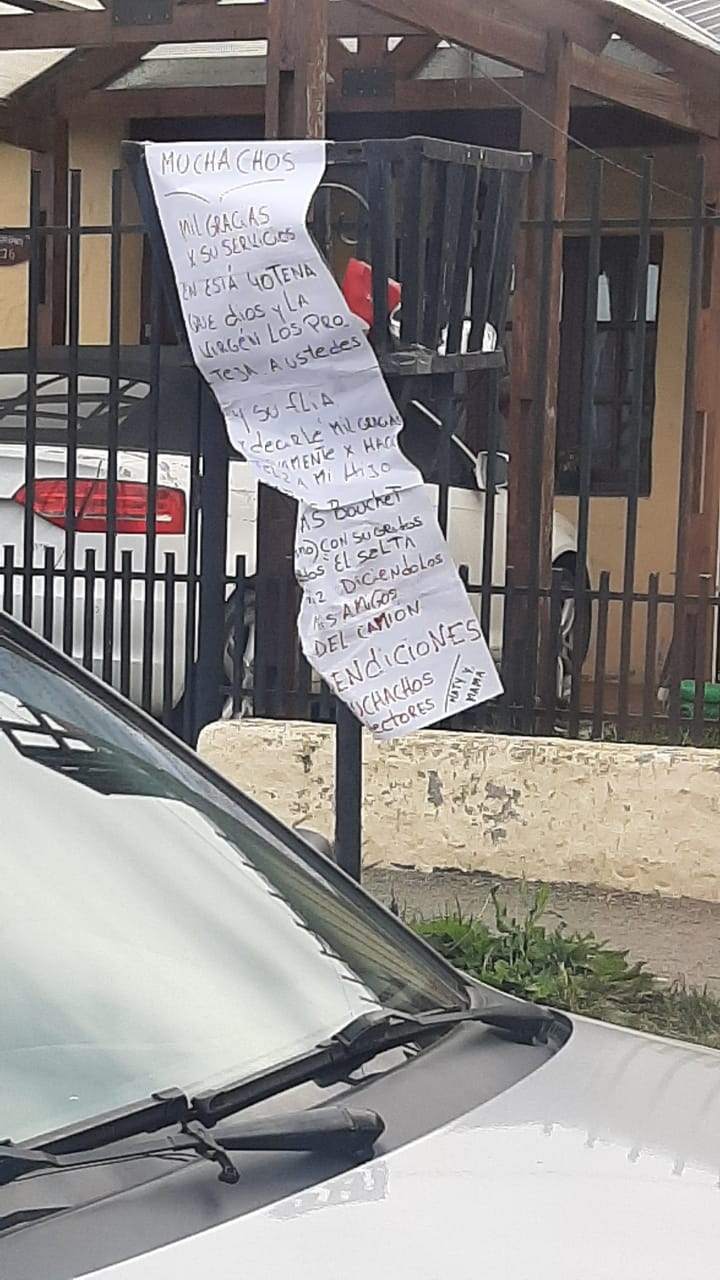 MUCHACHOS
MIL GRACIAS
X SU SERVICIOS
EN ESTÁ 40TENA
QUE diOS y LA
VIRGÉN LOS PRO
TEJA A USTEDES
Y SU FLIA
decirlé MIL GRACIAS
X HACE
A MI HIJO
AS BOUCHET
CON SU GRITOS
EL SELTA
DiCiENdOLOS
MIS AMIGOS
DEL CAMIÓN
ENDICIONES
UCHACHOS
ECTORES
NATY Y.
MAMA